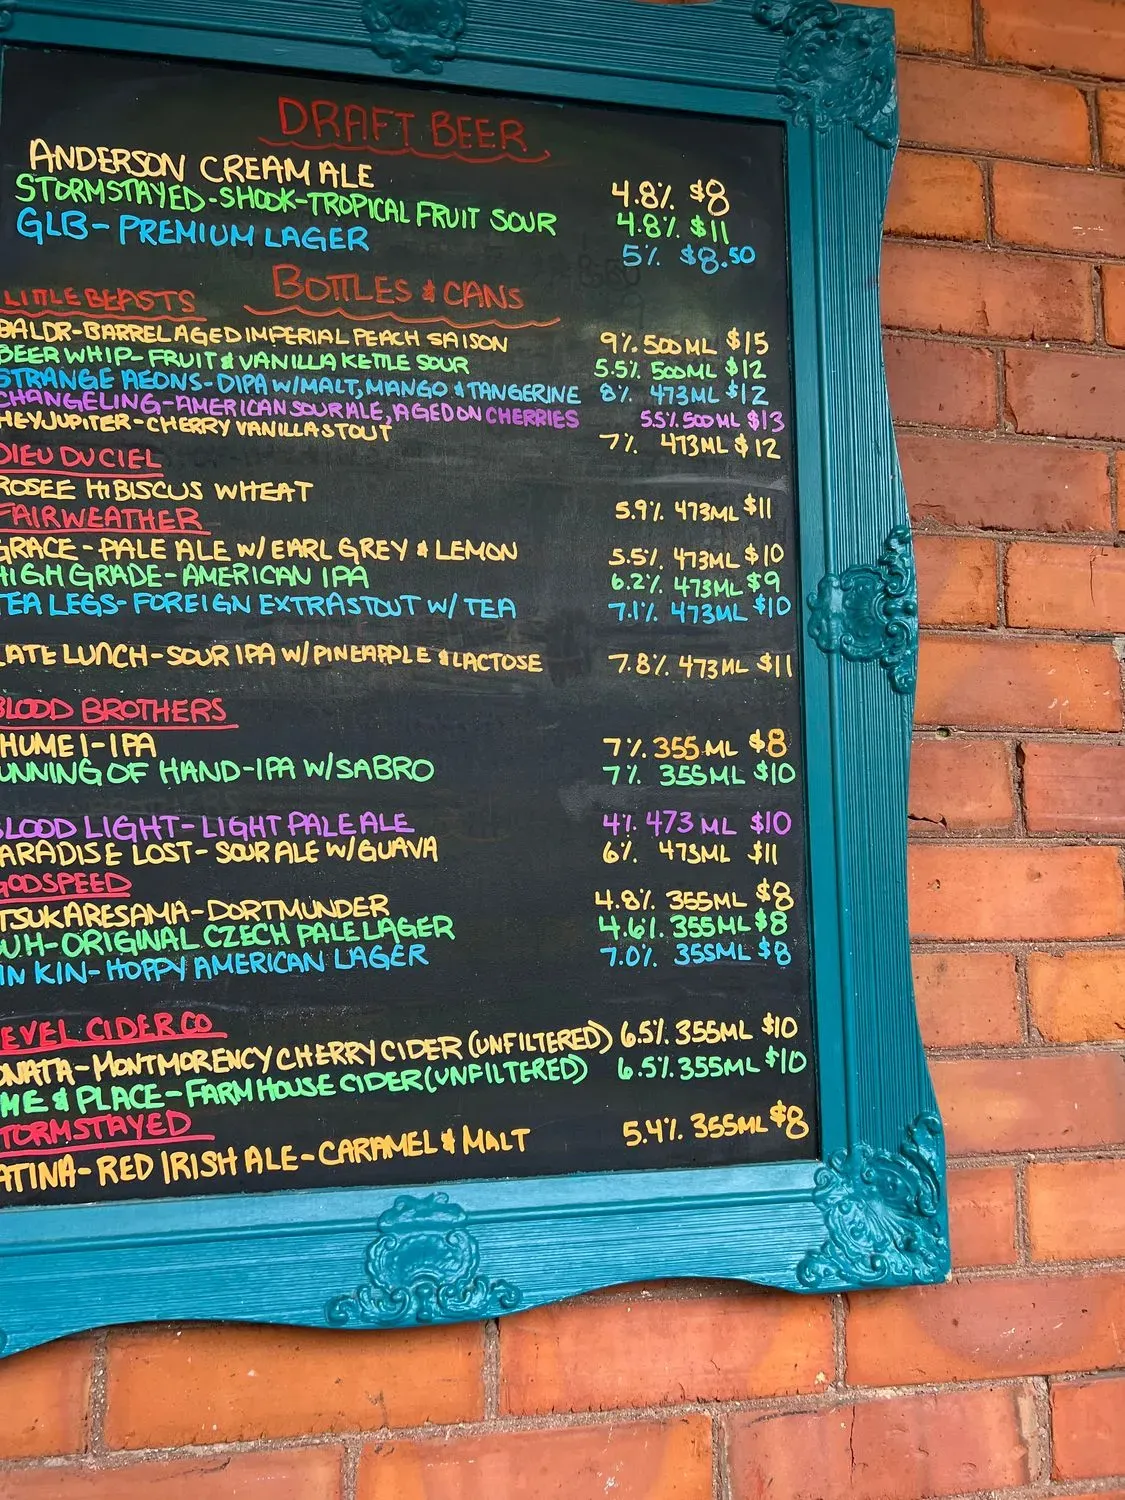 DRAFT BEER
ANDERSON CREAM ALE 4.8% $8
STORMSTAYED-SHOOK-TROPICAL FRUIT SOUR 4.8% $11
GLB-PREMIUM LAGER 5% $8.50
BOTTLES & CANS
LITTLE BEASTS
BALDR-BARREL AGED IMPERIAL PEACH SAISON 9% 500ML $15
BEER WHIP-FRUIT & VANILLA KETTLE SOUR 5.5% 500ML $12
STRANGE AEONS-DIPA W/MALT, MANGO & TANGERINE 8% 473ML $12
CHANGELING-AMERICAN SOUR ALE, AGED ON CHERRIES 5.5% 500ML $13
HEY JUPITER-CHERRY VANILLA STOUT 7% 473ML $12
DIEU DU CIEL
ROSEE HIBISCUS WHEAT 5.9% 473ML $11
FAIRWEATHER
GRACE-PALE ALE W/ EARL GREY & LEMON 5.5% 473ML $10
HIGH GRADE-AMERICAN IPA 6.2% 473ML $9
TEA LEGS-FOREIGN EXTRA STOUT W/ TEA 7.1% 473ML $10
LATE LUNCH-SOUR IPA W/PINEAPPLE & LACTOSE 7.8% 473ML $11
BLOOD BROTHERS
SHUMEI-IPA 7% 355ML $8
UNNING OF HAND-IPA W/SABRO 7% 355ML $10
BLOOD LIGHT-LIGHT PALE ALE 4% 473ML $10
ARADISE LOST-SOUR ALE W/GUAVA 6% 473ML $11
GODSPEED
TSUKARESAMA-DORTMUNDER 4.8% 355ML $8
UH-ORIGINAL CZECH PALE LAGER 4.6% 355ML $8
IN KIN-HOPPY AMERICAN LAGER 7.0% 355ML $8
EVEL CIDER CO
ONATA-MONTMORENCY CHERRY CIDER (UNFILTERED) 6.5% 355ML $10
ME & PLACE-FARMHOUSE CIDER (UNFILTERED) 6.5% 355ML $10
TORMSTAYED
ATINA-RED IRISH ALE-CARAMEL & MALT 5.4% 355ML $8